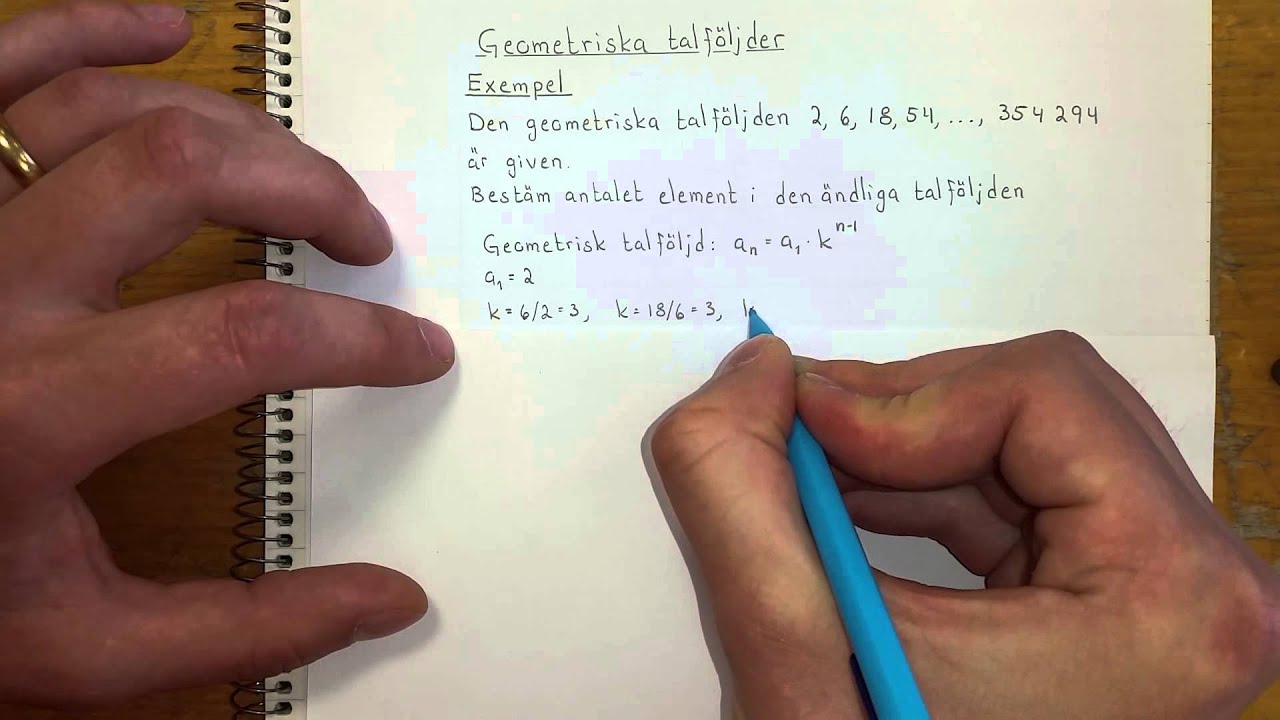 Geometriska talföljder
Exempel
Den geometriska talföljden 2, 6, 18, 54, ..., 354 294
är given.
Bestäm antalet element i den ändliga talföljden
Geometrisk talföljd: aₙ = a₁ · kⁿ⁻¹
a₁ = 2
k = 6/2 = 3, k = 18/6 = 3, k